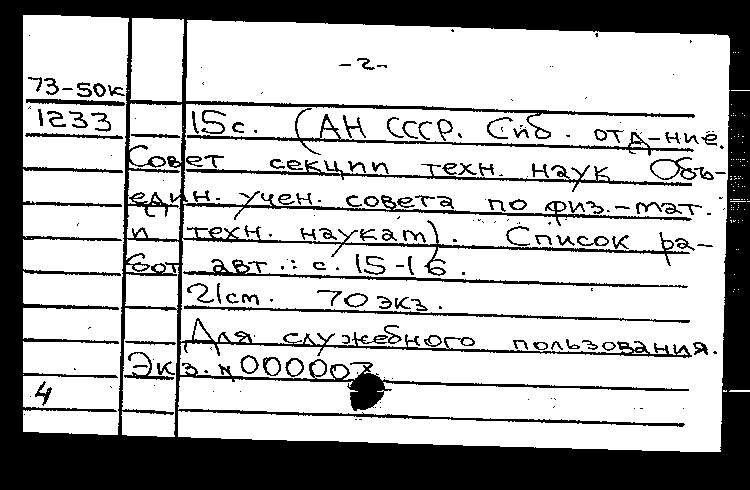 -2-
73-50к
1233 15с. (АН СССР. Сиб. отд-ние.
Совет секции техн. наук Объ-
един. учен. совета по физ.-мат.
и техн. наукам). Список ра-
бот авт.: с. 15-16.
21см. 70 экз.
Для служебного пользования.
Экз. № 000007
4